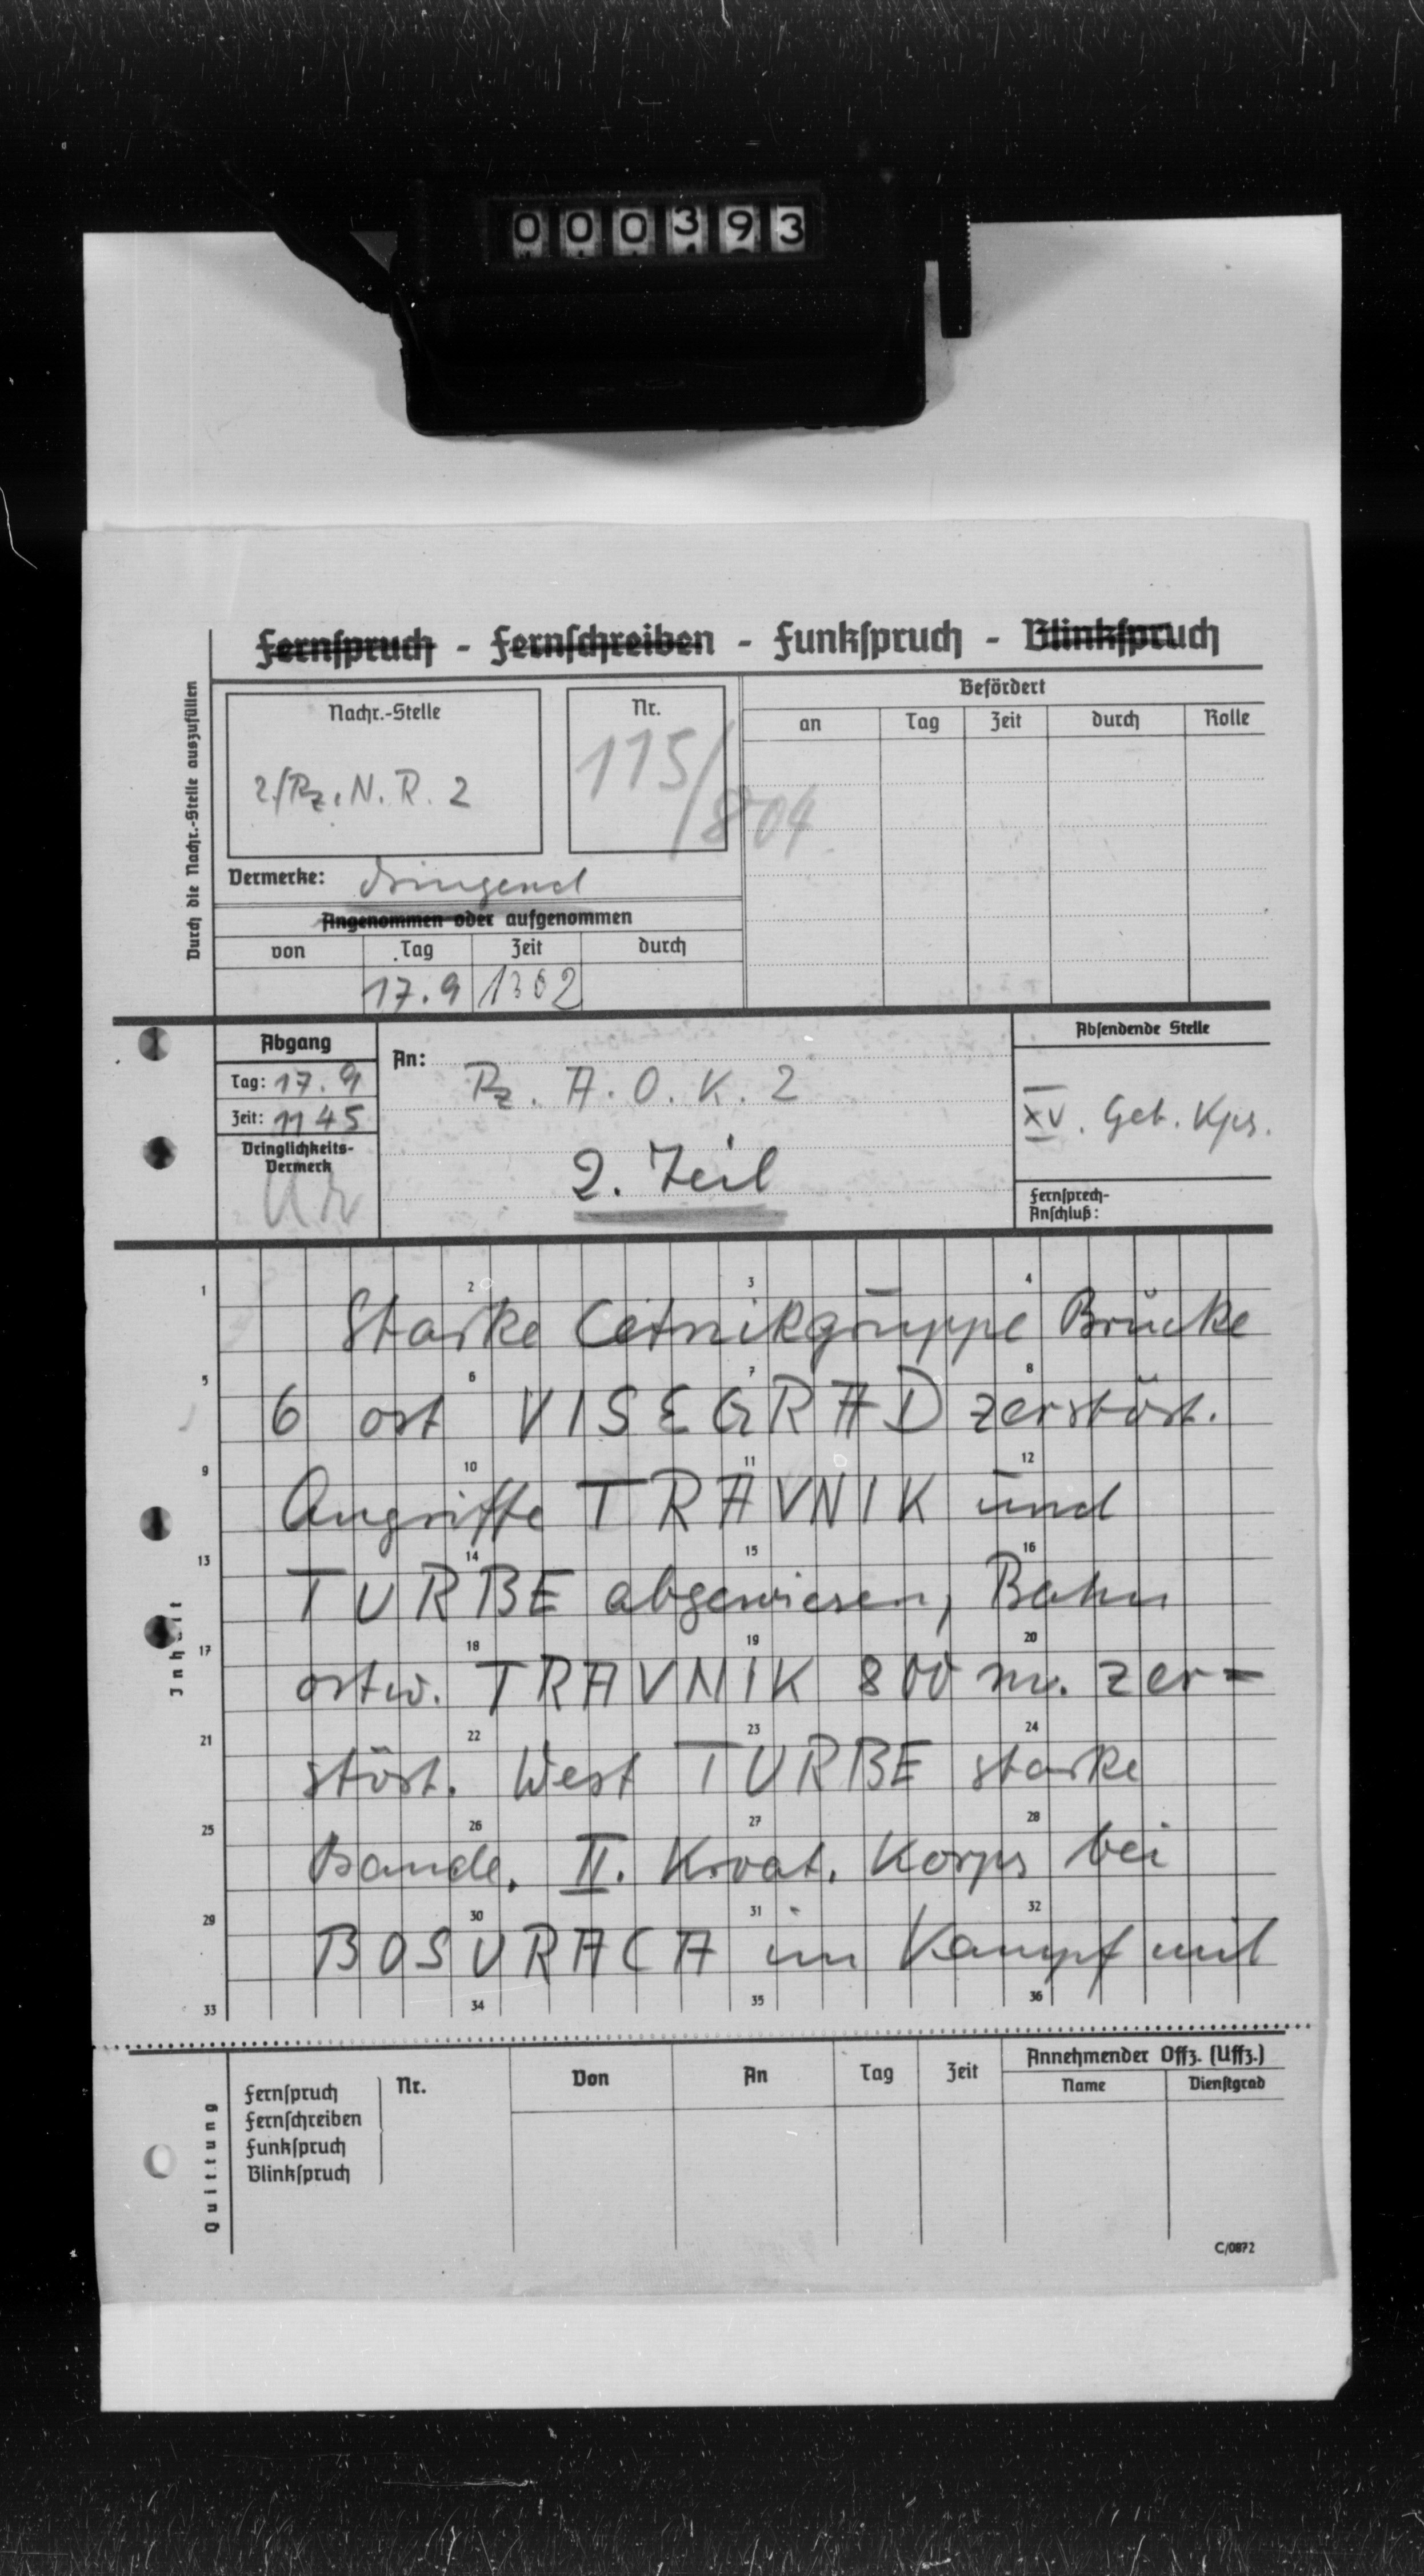 000393
Fernspruch - Fernschreiben - Funkspruch - Blinkspruch
Durch die Nachr.-Stelle auszufüllen
Nachr.-Stelle
2./Pz. N. R. 2
Nr.
115/804
Befördert
an Tag Zeit durch Rolle
Vermerke: dringend
Angenommen oder aufgenommen
von Tag Zeit durch
17.9 1302
Abgang
Tag: 17.9
Zeit: 1145
Dringlichkeits-
Vermerk
An:
Pz. A. O. K. 2
2. Teil
Absendende Stelle
XV. Geb. Kps.
Fernsprech-
Anschluß:
Inhalt
1 2 3 4
Starke Cetnikgruppe Brücke
5 6 7 8
6 ost VISEGRAD zerstört.
9 10 11 12
Angriffe TRAVNIK und
13 14 15 16
TURBE abgewiesen, Bahn
17 18 19 20
ostw. TRAVNIK 800 m. zer-
21 22 23 24
stört. West TURBE starke
25 26 27 28
Bande. II. Kroat. Korps bei
29 30 31 32
BOSURACA im Kampf mit
33 34 35 36
Quittung
Fernspruch
Fernschreiben
Funkspruch
Blinkspruch
Nr. Von An Tag Zeit
Annehmender Offz. (Uffz.)
Name Dienstgrad
C/0872